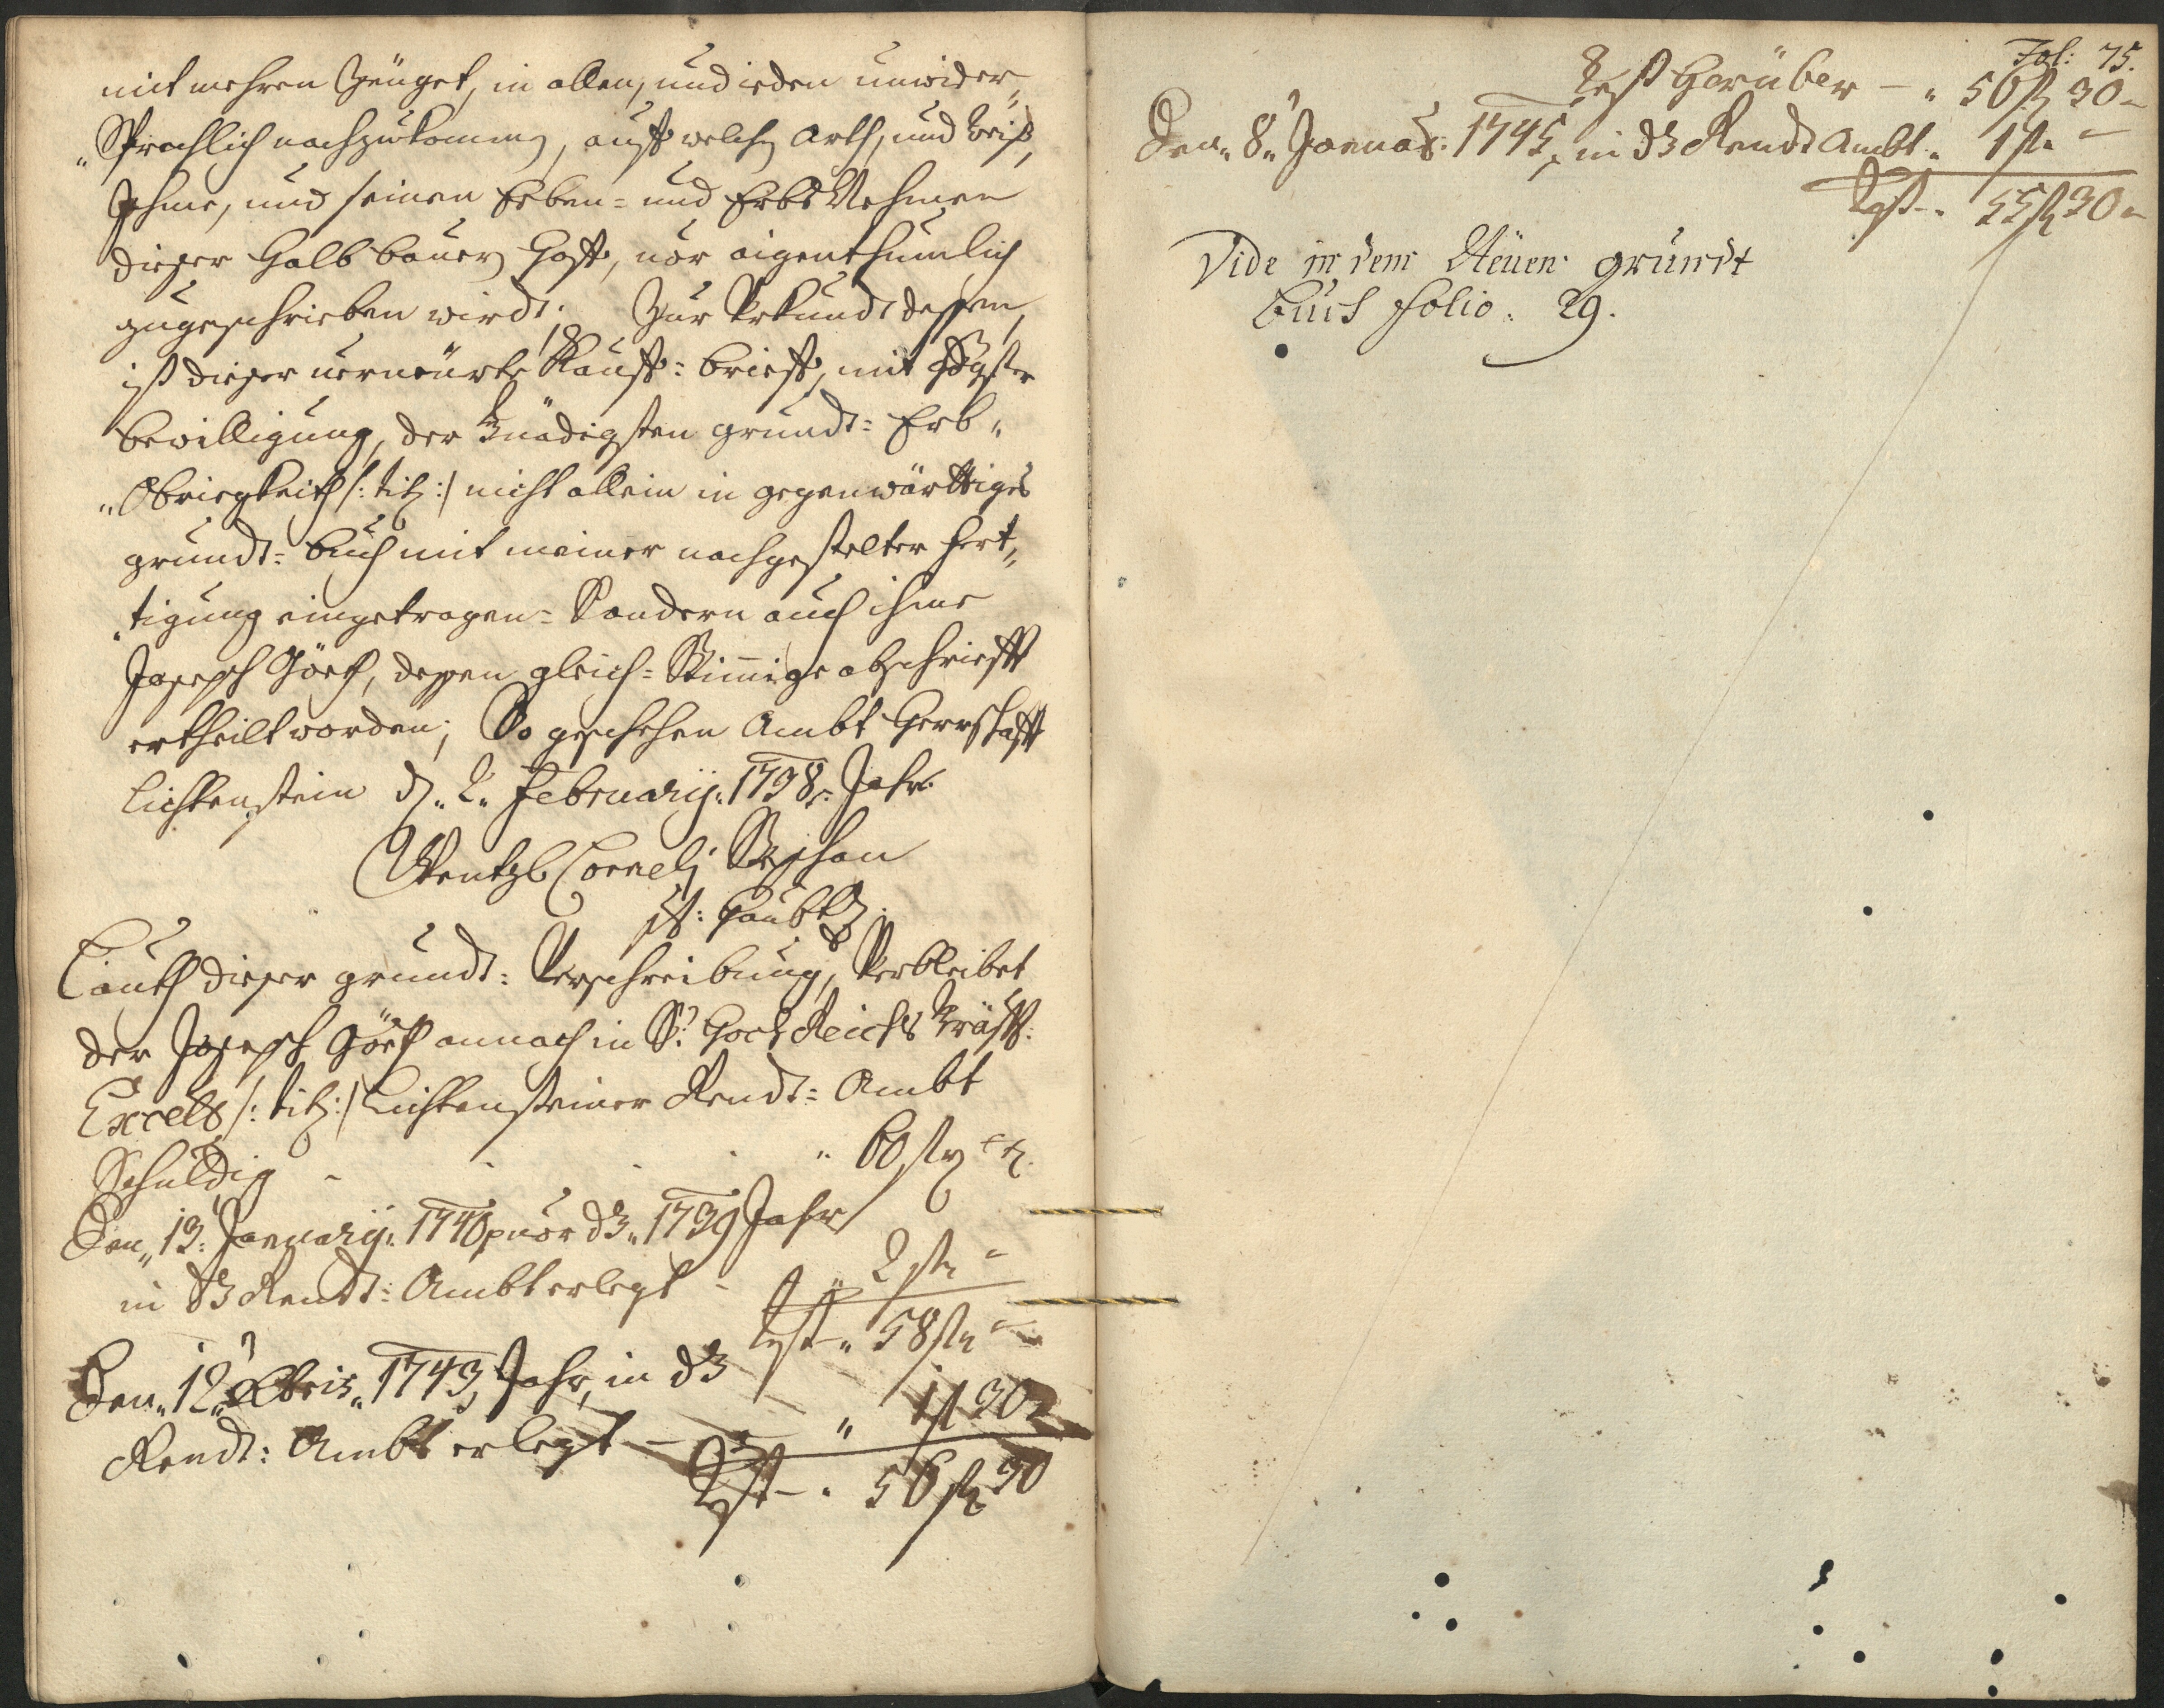 mit mehren Zeüget, in allen, und ieden unwider„
„Sprachlich nachzukommen, auff welche Arth, und Weiß,
Ihme, und seinen Erben= und Erbs Nehmen
dieser Halb bauern Hoff, vor aigenthumlich
zugeschrieben wirdt. Zur Urkundt dessen,
ist dieser verneürte Kauff= brieff, mit
bewilligung, der Gnädigsten grundt= Erb„
„Obriegkeith /: tit: / nicht allein in gegenwärttiges
grundt= buch mit meiner nachgestelter fert„
„tigung eingetragen= Sondern auch ihme
Joseph Görth, dessen gleich= Stimige abschriefft
ertheilt worden; So geschehen Ambt Herrschafft
Lichtenstein d. 2. Februarij. 1738. Jahr.
Wentzl Cornelj Stephan
Haubtm.
Lauth dieser grundt= Verschreibung, Verbleibet
der Joseph Görth annoch in Sr. Hoch Reichs Gräffl:
Excell: /: tit: / Lichtensteiner Rendt= Ambt
Schuldig - " 60 fl
Den 13. Januarij. 1740 vor d3. 1739 Jahr
in d3 Rendt= Ambt erlegt - " 2 fl
Rest " 58 fl
Den 12. Xbris. 1743 Jahr, in d3
Rendt: Ambt erlegt - " 1 fl 30
Rest - " 56 fl 30
Fol: 75.
Rest herüber - " 56 fl 30
Den 8. Januar: 1745, in d3 Rendt Ambt. 1 fl
Rest - " 55 fl 30
Vide in dem Neüen grundt
buch folio. 29.